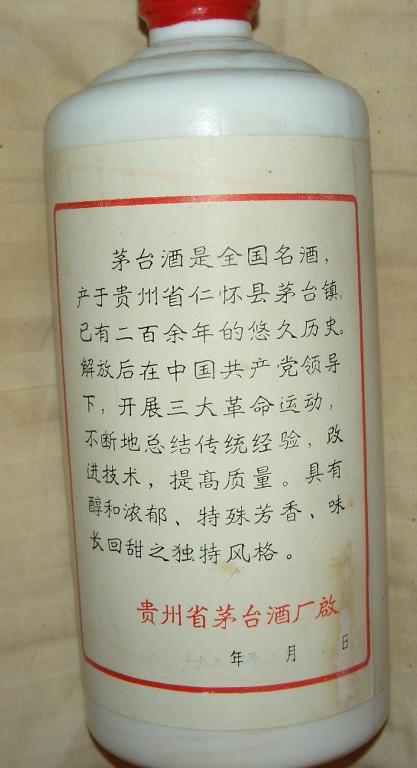 茅台酒是全国名酒，
产于贵州省仁怀县茅台镇，
已有二百余年的悠久历史。
解放后在中国共产党领导
下，开展三大革命运动，
不断地总结传统经验，改
进技术，提高质量。具有
醇和浓郁、特殊芳香、味
长回甜之独特风格。
贵州省茅台酒厂啟
年 月 日